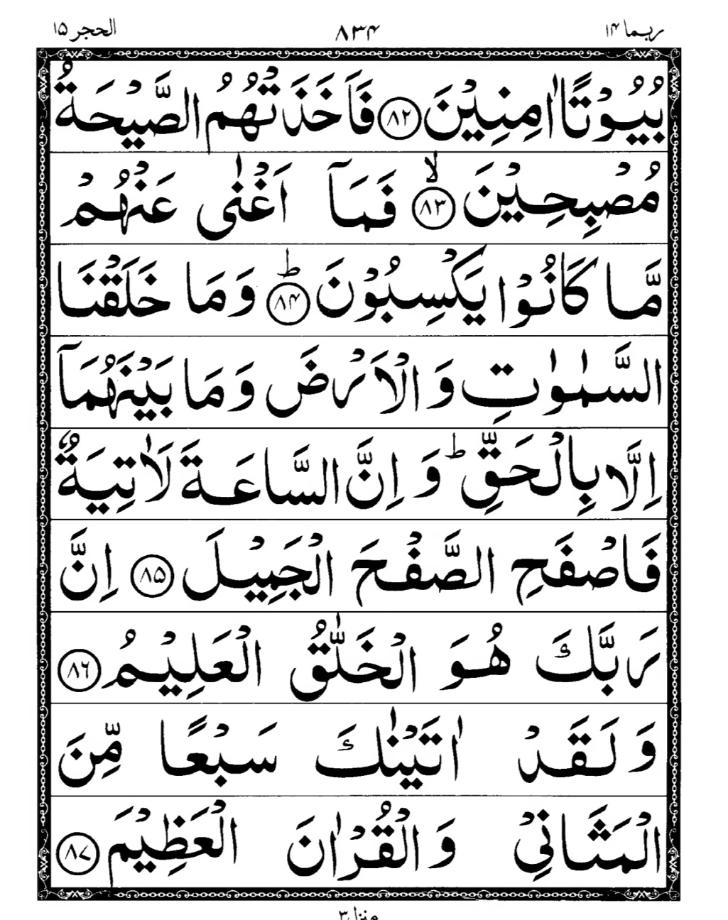 ربما ۱۴ ۸۳۴ الحجر ۱۵
بُيُوْتًا اٰمِنِيْنَ ﴿۸۲﴾ فَاَخَذَتْهُمُ الصَّيْحَةُ
مُصْبِحِيْنَ ۙ﴿۸۳﴾ فَمَاۤ اَغْنٰى عَنْهُمْ
مَّا كَانُوْا يَكْسِبُوْنَ ؕ﴿۸۴﴾ وَمَا خَلَقْنَا
السَّمٰوٰتِ وَالْاَرْضَ وَمَا بَيْنَهُمَاۤ
اِلَّا بِالْحَقِّ ؕ وَاِنَّ السَّاعَةَ لَاٰتِيَةٌ
فَاصْفَحِ الصَّفْحَ الْجَمِيْلَ ﴿۸۵﴾ اِنَّ
رَبَّكَ هُوَ الْخَلّٰقُ الْعَلِيْمُ ﴿۸۶﴾
وَلَقَدْ اٰتَيْنٰكَ سَبْعًا مِّنَ
الْمَثَانِيْ وَالْقُرْاٰنَ الْعَظِيْمَ ﴿۸۷﴾
منزل ۳